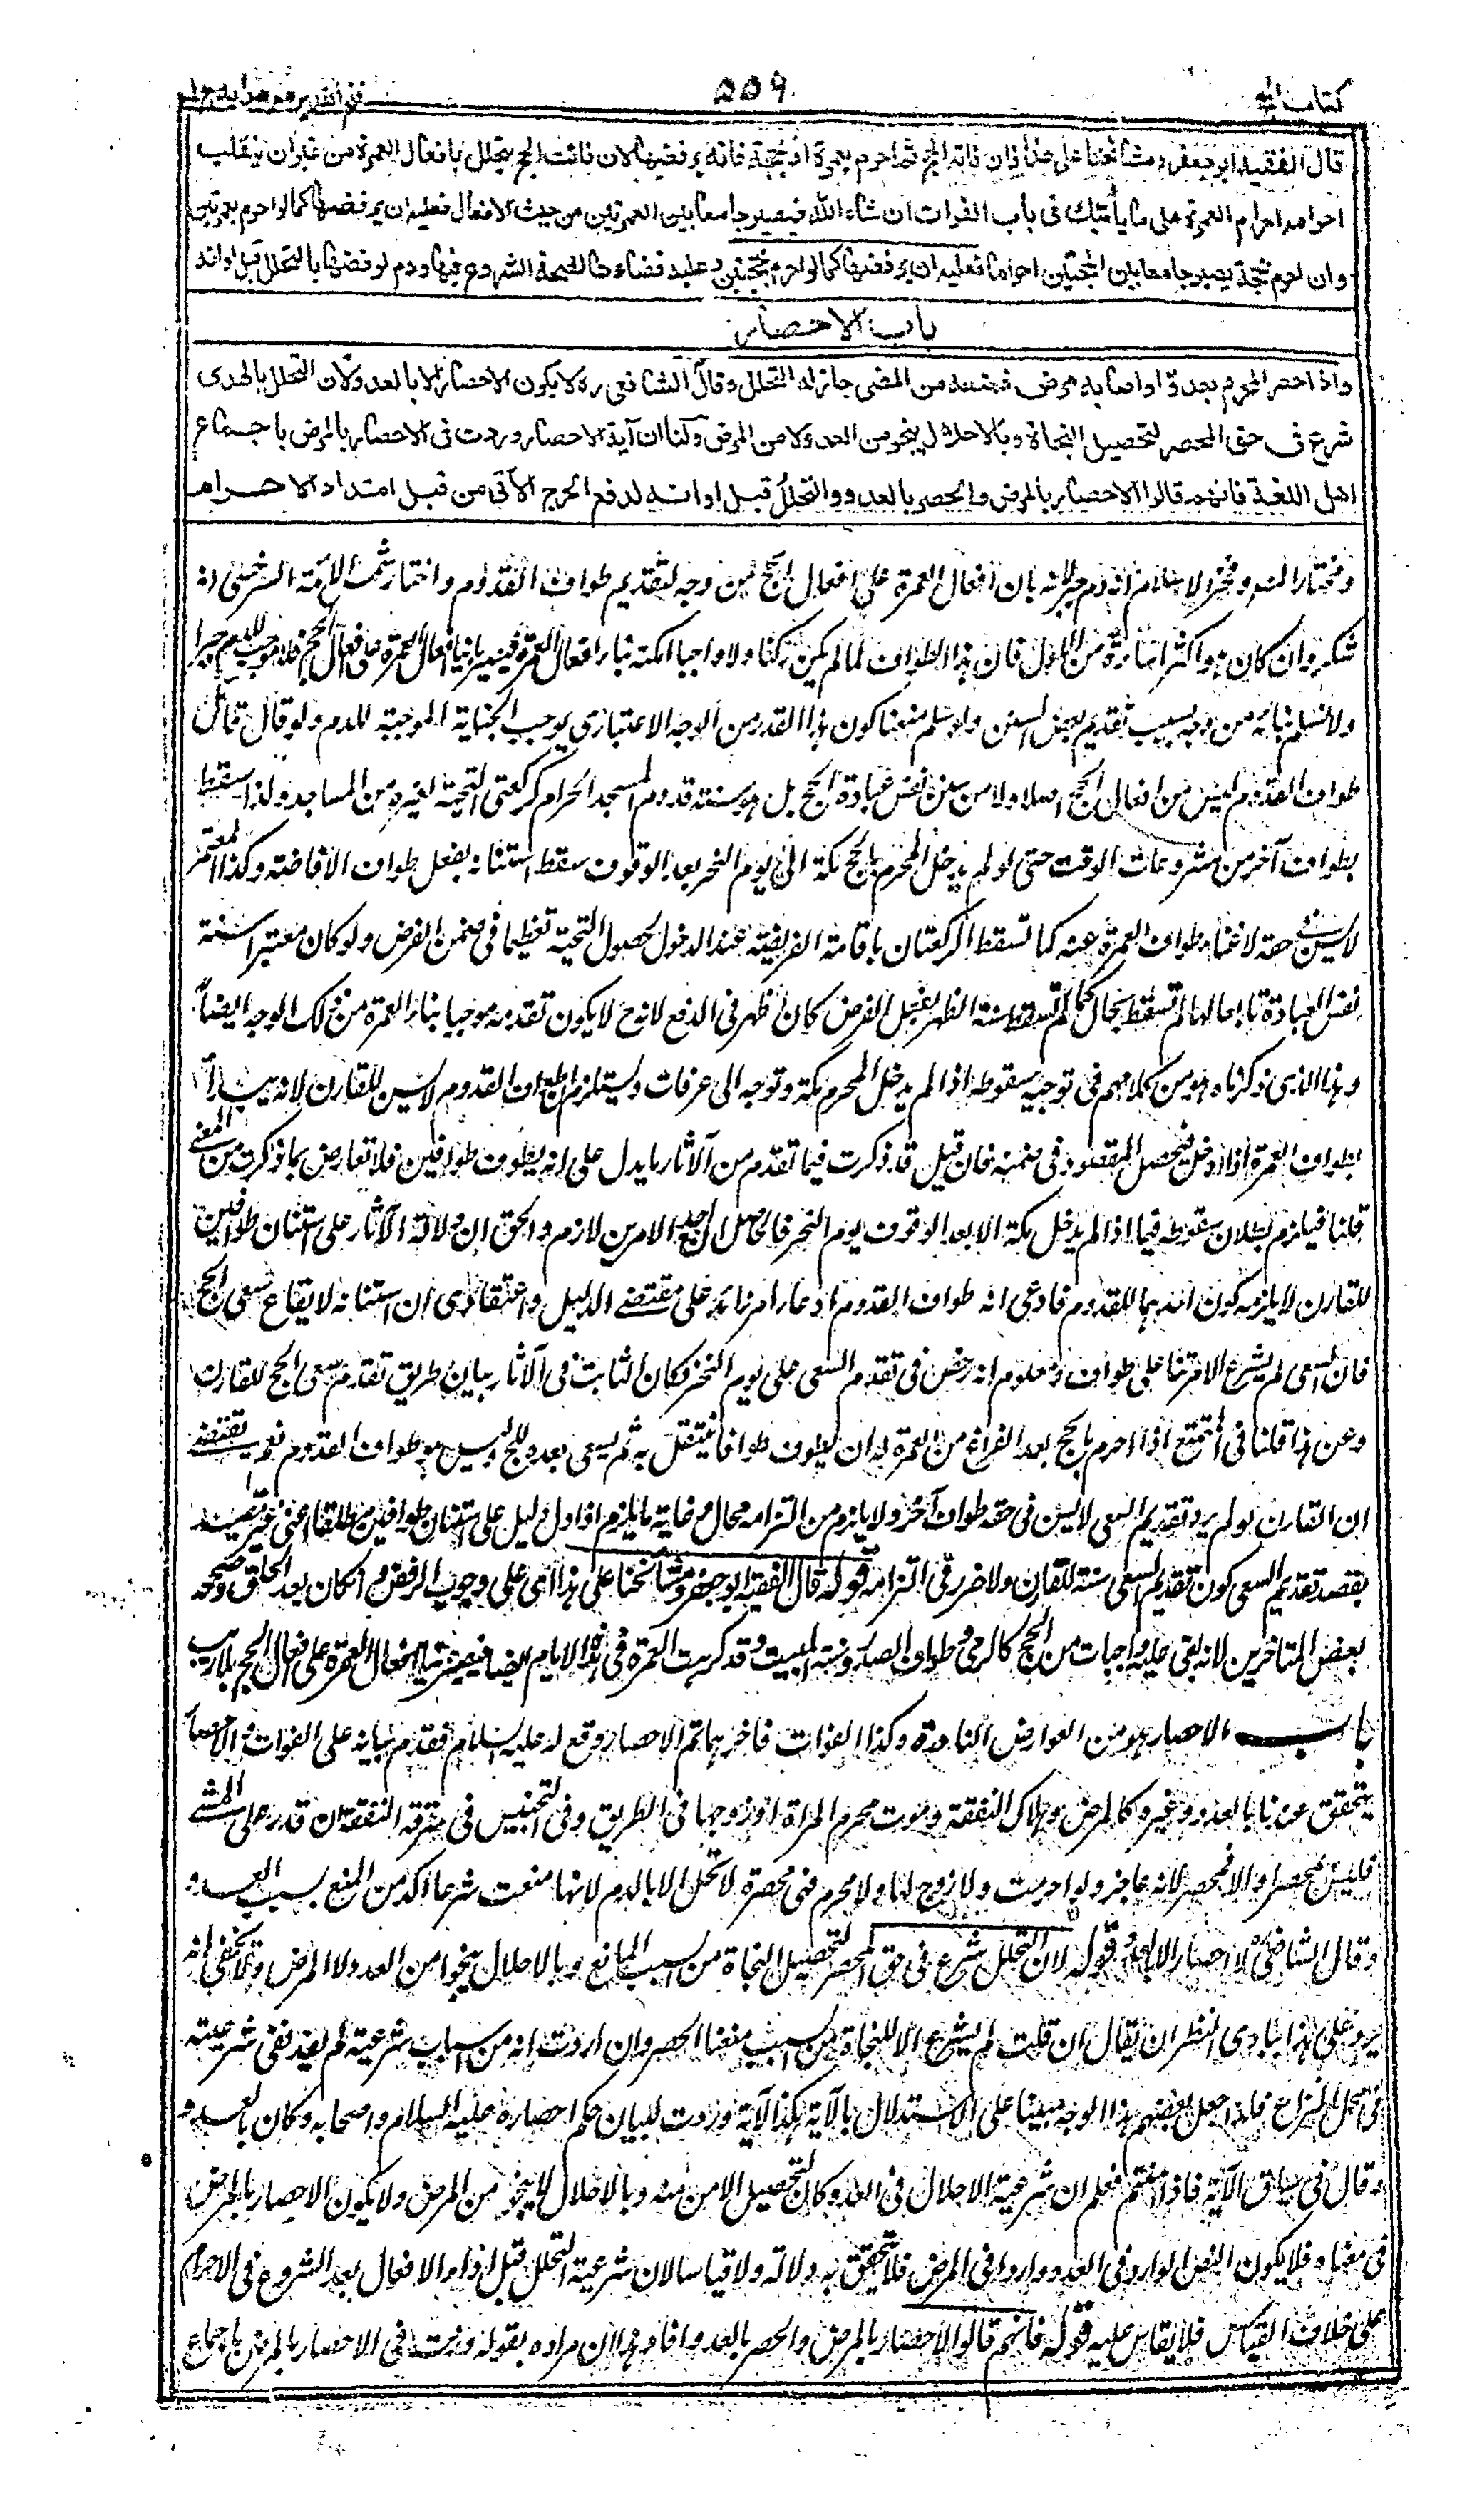 كتاب الحج
۵۵۹
فتح القدير مع هدايه جلد
قال الفقيه ابو جعفر ومشائخنا على هذا فان فاته الحج ثم احرم بعمرة او بحجة فانه يرفضها لان فائت الحج يتحلل بافعال العمرة من غير ان ينقلب
احرامه احرام العمرة على ما يأتيك فى باب الفوات ان شاء الله فيصير جامعا بين العمرتين من حيث الافعال فعليه ان يرفضها كما لو احرم بعمرتين
وان احرم بحجة يصير جامعا بين الحجتين احراما فعليه ان يرفضها كما لو احرم بحجتين وعليه قضاءها لصحة الشروع فيها ودم لرفضها بالتحلل قبل اوانه
باب الاحصار
واذا احصر المحرم بعدو او اصابه مرض فمنعه من المضى جاز له التحلل وقال الشافعى ره لا يكون الاحصار الا بالعدو لان التحلل بالهدى
شرع فى حق المحصر لتحصيل النجاة وبالاحلال ينجو من العدو لا من المرض ولنا ان آية الاحصار وردت فى الاحصار بالمرض باجماع
اهل اللغة فانهم قالوا الاحصار بالمرض والحصر بالعدو والتحلل قبل اوانه لدفع الحرج الآتى من قبل امتداد الاحرام
ومختار المصنف وفخر الاسلام انه دم جبر لانه بان افعال العمرة على افعال الحج من وجه لتقديم طواف القدوم واختار شمس الائمة السرخسى انه
شكر وان كان هو اكثر اساءة من الاول فان هذا الطواف لما لم يكن ركنا ولا واجبا امكنه بناء افعال العمرة فيصير بانيا افعال العمرة على افعال الحج فلا موجب للدم جبرا
ولا نسلم بناءه من وجه بسبب تقديم بعض السنن ولو سلم منعنا كون هذا القدر من الوجه الاعتبارى يوجب الجناية الموجبة للدم ولو قال قائل
طواف القدوم ليس من افعال الحج اصلا ولا من سنن نفس عبادة الحج بل هو سنة قدوم المسجد الحرام كركعتى التحية لغيره من المساجد ولذا سقط
بطواف آخر من مشروعات الوقت حتى لو لم يدخل المحرم بالحج مكة الى يوم النحر بعد الوقوف سقط استنانه بفعل طواف الافاضة وكذا المعتمر
لا يسن فى حقه لاغناء طواف العمرة عنه كما تسقط الركعتان باقامة الفريضة عند الدخول لحصول التحية تعظيما فى ضمن الفرض ولو كان معتبرا سنة
نفس العبادة تابعا لها لم تسقط بحال كما لم تسقط سنة الظهر بفعل الفرض كان اظهر فى الدفع لانه ح لا يكون تقدمه موجبا بناء العمرة من ذلك الوجه ايضا
وهذا الذى ذكرناه هو من كلامهم فى توجيه سقوطه اذا لم يدخل المحرم مكة وتوجه الى عرفات ويستلزم ان طواف القدوم لا يسن للقارن لانه يبدأ
بطواف العمرة اذا دخل فيحصل المقصود فى ضمنه فان قيل قد ذكرت فيما تقدم من الآثار ما يدل على انه يطوف طوافين فلا تعارض بما ذكرت من المعنى
قلنا فيلزم بطلان سقوطه فيما اذا لم يدخل مكة الا بعد الوقوف يوم النحر فالحاصل ان احد الامرين لازم والحق ان دلالة الآثار على استنان طوافين
للقارن لا يلزمه كون احدهما للقدوم فادعى انه طواف القدوم ادعاء امر زائد على مقتضى الدليل واعتقادى ان استنانه لايقاع سعى الحج
فان السعى لم يشرع الا مرتبا على طواف ومعلوم انه رخص فى تقدم السعى على يوم النحر فكان الثابت فى الآثار بيان طريق تقدم سعى الحج للقارن
وعن هذا قلنا فى المتمتع اذا احرم بالحج بعد الفراغ من العمرة له ان يطوف طوافا يتنفل به ثم يسعى بعده للحج وليس هو طواف القدوم نعم يقتضى
ان القارن لو لم يرد تقديم السعى لا يسن فى حقه طواف آخر ولا يلزم من التزامه محال وغاية ما يلزم اذا دل دليل على استنان طوافين مطلقا اعنى غير مقيد
بقصد تقديم السعى كون تقديم السعى سنة للقارن ولا ضرر فى التزامه قوله قال الفقيه ابو جعفر ومشائخنا على هذا اى على وجوب الرفض وان كان بعد الحلق وصححه
بعض المتاخرين لانه بقى عليه واجبات من الحج كالرمى وطواف الصدر وسنة المبيت وقد كرهت العمرة فى هذه الايام ايضا فيصير بانيا افعال العمرة على افعال الحج بلا ريب
باب الاحصار هو من العوارض النادرة وكذا الفوات فاخرهما ثم الاحصار وقع له عليه السلام فقدم بيانه على الفوات ثم الاحصار
يتحقق عندنا بالعدو وغيره كالمرض وهلاك النفقة وموت محرم المرأة او زوجها فى الطريق وفى التجنيس فى سرقة النفقة ان قدر على المشى
فليس بمحصر والا فمحصر لانه عاجز ولو احرمت ولا زوج لها ولا محرم فهى محصرة لا تحل الا بالدم لانها منعت شرعا اكد من المنع بسبب العدو
وقال الشافعى لا احصار الا بالعدو قوله لان التحلل شرع فى حق المحصر لتحصيل النجاة من السبب المانع وبالاحلال ينجو من العدو لا المرض ولا يخفى انه
يرد على هذا ببادى النظر ان يقال ان قلت لم يشرع الا للنجاة من السبب منعنا الحصر وان اردت انه من اسباب شرعيته لم يفد نفى شرعيته
فى محل النزاع فلذا جعل بعضهم هذا الوجه مبينا على الاستدلال بالآية هكذا الآية وردت لبيان حكم احصاره عليه السلام واصحابه وكان بالعدو
وقال فى سياق الآية فاذا امنتم فعلم ان شرعية الاحلال فى العدو كان لتحصيل الامن منه وبالاحلال لا ينجو من المرض ولا يكون الاحصار بالمرض
فى معناه فلا يكون النص الوارد فى العدو واردا فى المرض فلا يتحقق به دلالة ولا قياسا لان شرعية التحلل قبل اداء الافعال بعد الشروع فى الاحرام
على خلاف القياس فلا يقاس عليه قوله فانهم قالوا الاحصار بالمرض والحصر بالعدو افاد بهذا ان مراده بقوله وردت فى الاحصار بالمرض باجماع